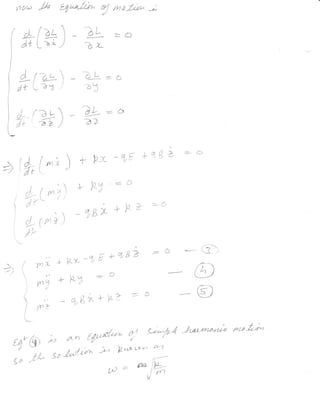 now the Equation of motion is
d/dt (∂L/∂ẋ) - ∂L/∂x = 0
d/dt (∂L/∂ẏ) - ∂L/∂y = 0
d/dt (∂L/∂ż) - ∂L/∂z = 0
⇒ d/dt (mẋ) + kx - qE + qBż = 0
d/dt (mẏ) + ky = 0
d/dt (mż) - qBẋ + kz = 0
⇒ mẍ + kx - qE + qBż = 0 — (3)
mÿ + ky = 0 — (4)
mz̈ - qBẋ + kz = 0 — (5)
Eqn (4) is an equation of simple harmonic motion
so the solution is known as
ω = √k/m